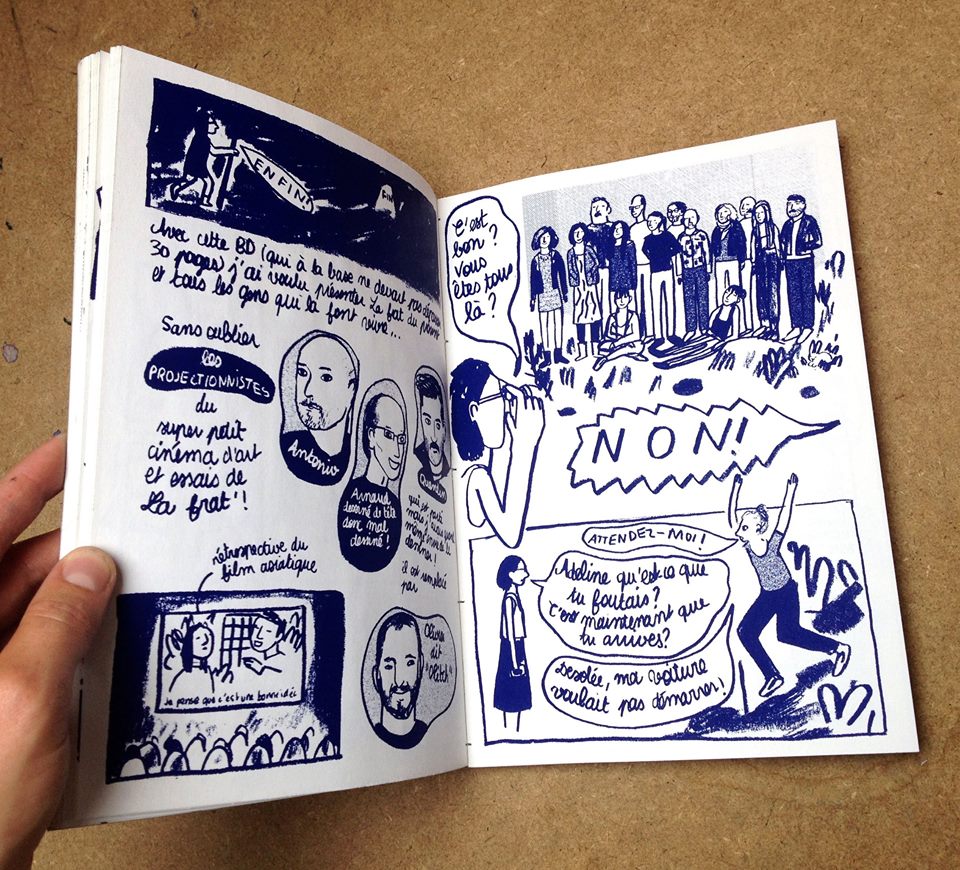 ENFIN!
FIN
Avec cette BD (qui à la base ne devait pas dépasser
30 pages) j'ai voulu présenter La frat' du
et tous les gens qui la font vivre...
Sans oublier
les
PROJECTIONNISTES
du
super petit
cinéma d'art
et essais de
La frat'!
Antonio
Arnaud
dessiné de tête
donc mal
dessiné!
Quentin
qui est parti
mais j'avais
même envie de le
dessiner!
il est remplacé
par
Olivier
dit
rétrospective du
film asiatique
Je pense que c'est une bonne idée
C'est
bon?
vous
êtes tous
là?
NON!
ATTENDEZ-MOI!
Adeline qu'est-ce que
tu foutais?
c'est maintenant que
tu arrives?
Desolée, ma voiture
voulait pas démarrer!